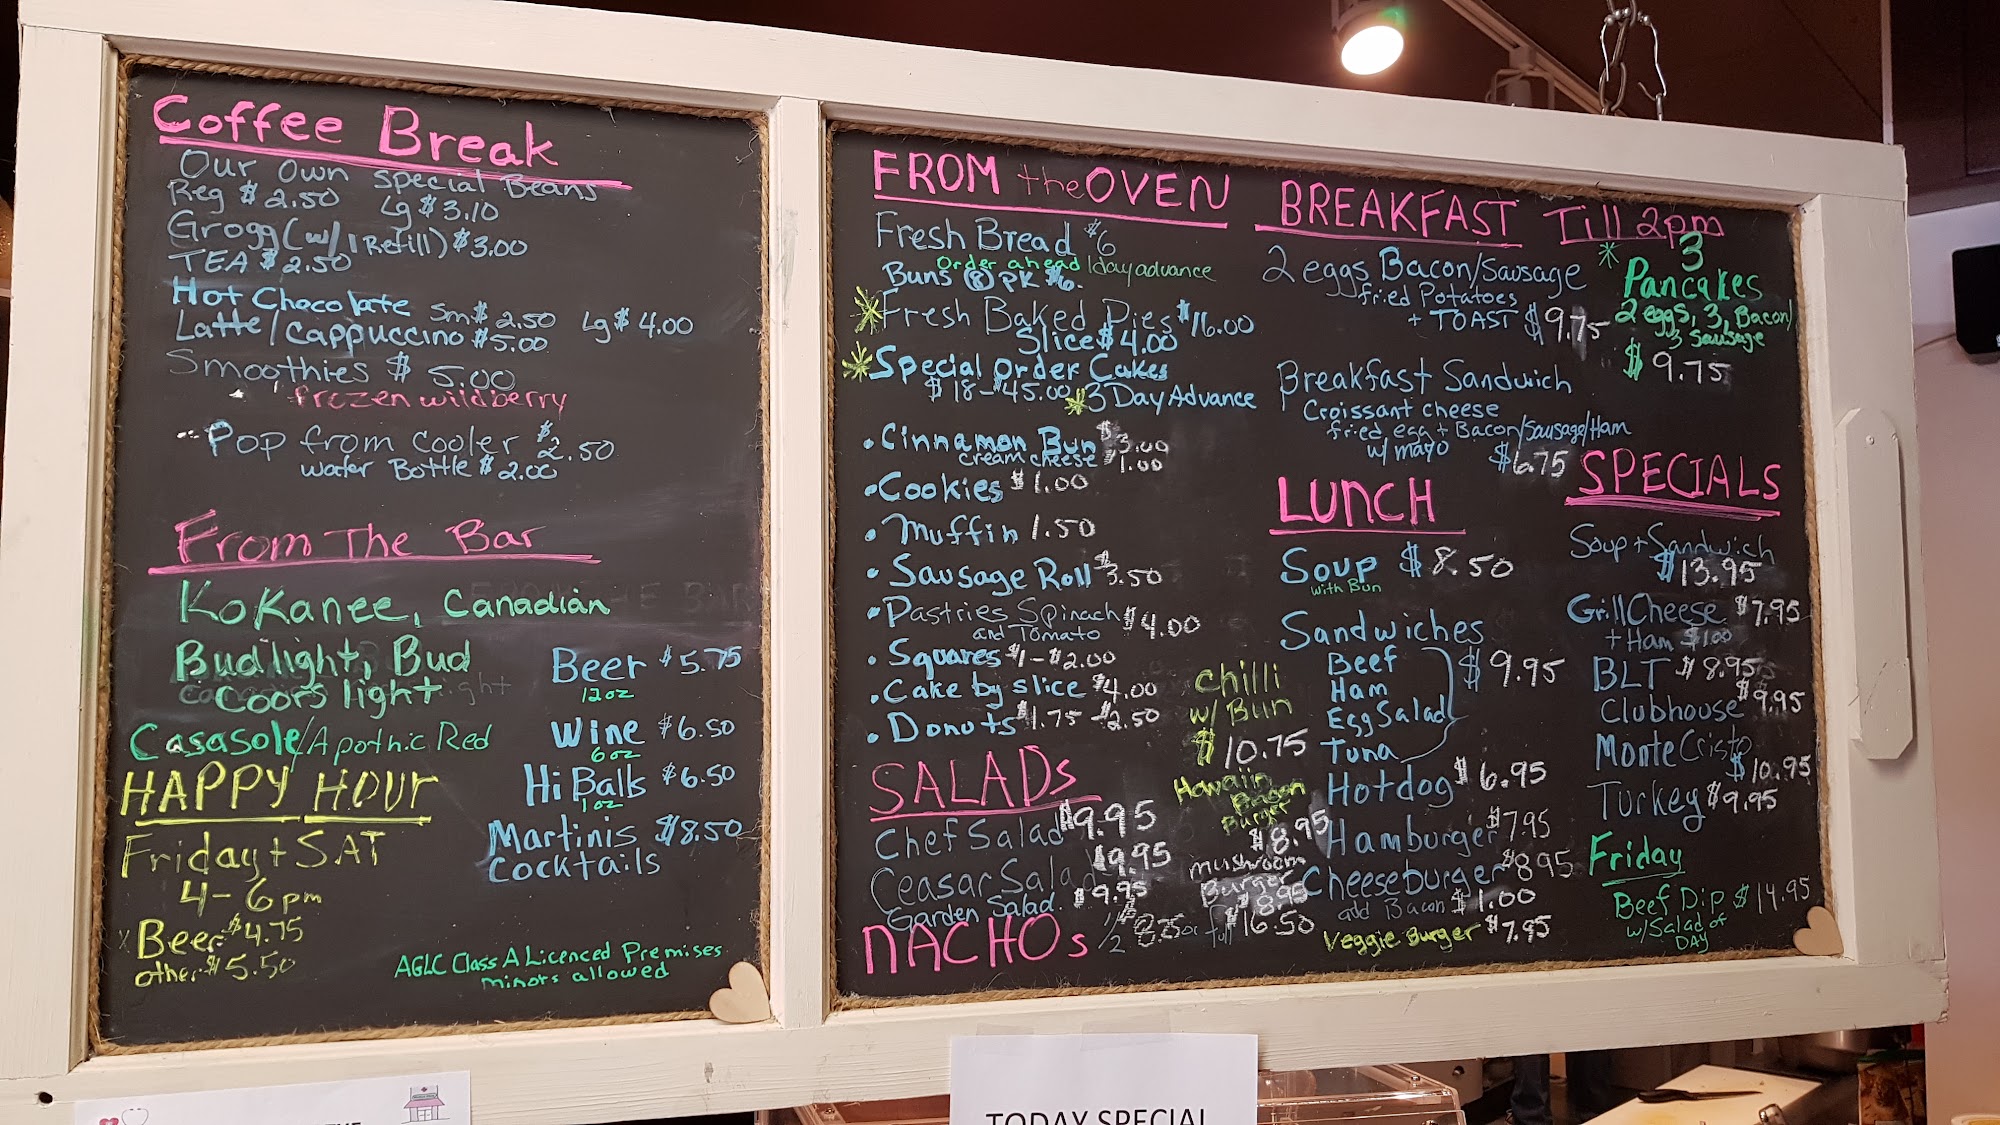 Coffee Break
Our Own special Beans
Reg $2.50 Lg $3.10
Grogg (w/1 Refill) $3.00
TEA $2.50
Hot Chocolate Sm $2.50 Lg $4.00
Latte/Cappuccino $5.00
Smoothies $5.00
frozen wildberry
Pop from cooler $2.50
water Bottle $2.00
From The Bar
Kokanee, Canadian
Budlight, Bud
Coors light
Casasole/Apothic Red
Beer $5.75
12oz
Wine $6.50
6oz
Hi Balls $6.50
1oz
Martinis $8.50
Cocktails
HAPPY HOUr
Friday + SAT
4-6pm
Beer $4.75
other $5.50
AGLC Class A Licenced Premises
minors allowed
FROM the OVEN
Fresh Bread $6
Order ahead 1day advance
Buns (8) PK $6.
Fresh Baked Pies $16.00
Slice $4.00
Special Order Cakes
$18-45.00 *3 Day Advance
• Cinnamon Bun $3.00
cream cheese $1.00
• Cookies $1.00
• Muffin 1.50
• Sausage Roll $3.50
• Pastries Spinach $4.00
and Tomato
• Squares $1-$2.00
• Cake by slice $4.00
• Donuts $1.75-$2.50
SALADs
Chef Salad $9.95
Ceasar Salad $9.95
Garden Salad $9.95
NACHOs 1/2 8.25 or full $16.50
chilli
w/ Bun
$10.75
Hawaiin
Bacon
Burger
$8.95
mushroom
Burger
$8.95
BREAKFAST Till 2pm
2 eggs Bacon/Sausage
fried Potatoes
+ TOAST $9.75
* 3
Pancakes
2 eggs, 3 Bacon/
3 Sausage
$9.75
Breakfast Sandwich
Croissant cheese
fried egg + Bacon/Sausage/Ham
w/ mayo $6.75
LUNCH
Soup $8.50
with Bun
Sandwiches
Beef
Ham
Egg Salad
Tuna
$9.95
Hotdog $6.95
Hamburger $7.95
Cheeseburger $8.95
add Bacon $1.00
Veggie Burger $7.95
SPECIALS
Soup + Sandwich
$13.95
Grill Cheese $7.95
+ Ham $1.00
BLT $8.95
Clubhouse $9.95
Monte Cristo
$10.95
Turkey $9.95
Friday
Beef Dip $14.95
w/ Salad of
DAY
TODAY SPECIAL